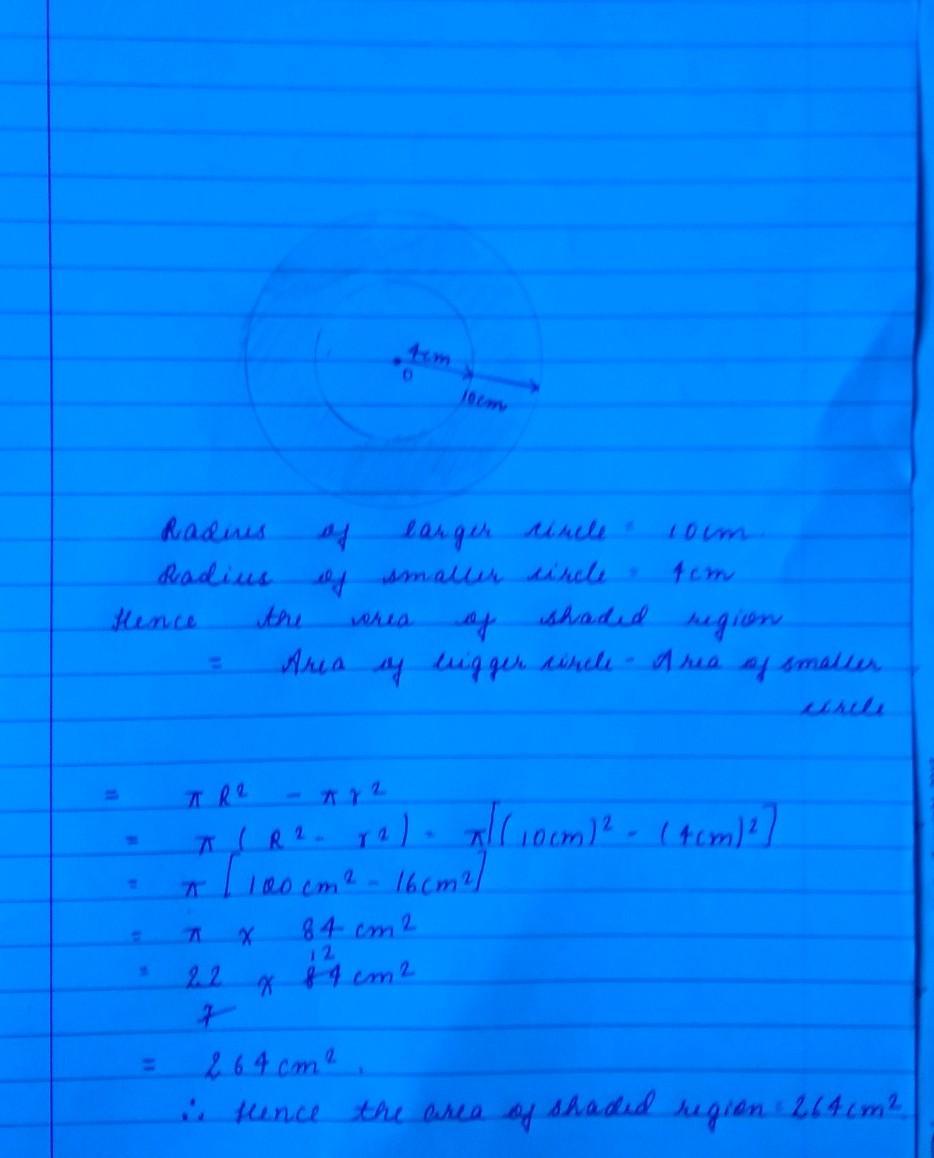 4cm
O
10cm
Radius of larger circle = 10cm.
Radius of smaller circle = 4cm
Hence the area of shaded region
= Area of bigger circle - Area of smaller
circle
= π R² - π r²
= π ( R² - r² ) = π [(10cm)² - (4cm)²]
= π [100cm² - 16cm²]
= π x 84 cm²
12
= 22 x 84 cm²
7
= 264cm².
∴ Hence the area of shaded region = 264cm²